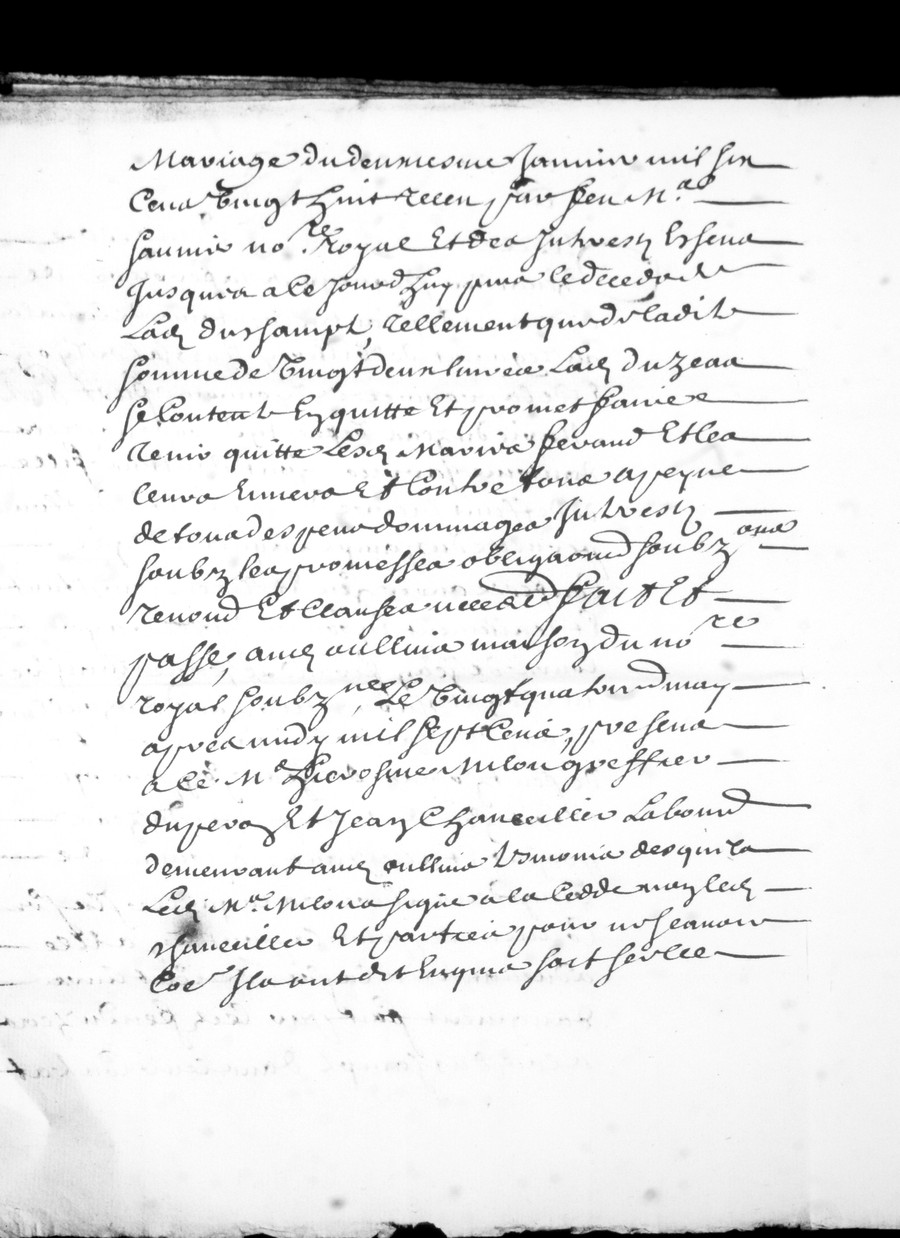 Mariage du deuxiesme Janvier mil six
Cens vingt huit receu par feu Me
Janvier nore Royal Et des Intrestz Essens
Jusques a ce Jourdhuy puis le deceds de
Lad duchampt, tellement que de ladite
somme de vingt deux livres Lad duzeaa
se Contente En quitte Et promet faire
tenir quitte Lesd Maries ferand Et les
leurs Envers Et Contre tous a peyne
de tous despens dommages Intrestz
soubz les promesses obligaons soubzons
renons Et Clauses necesres fait Et
passé, aud oullins maison du nore
royal soubzné, Le vingt quatorie may
apres midy mil sept Cens, presens
a ce Me hierosme Milon greffier
du peroy Et Jean Chancillier Labour
demeurant aud oullins tesmoins desquels
Led Me Milon a signé a la cedde non led
chancillier Et parties pour ne scavoir
Coe Ils ont dit Enquis soit scelle